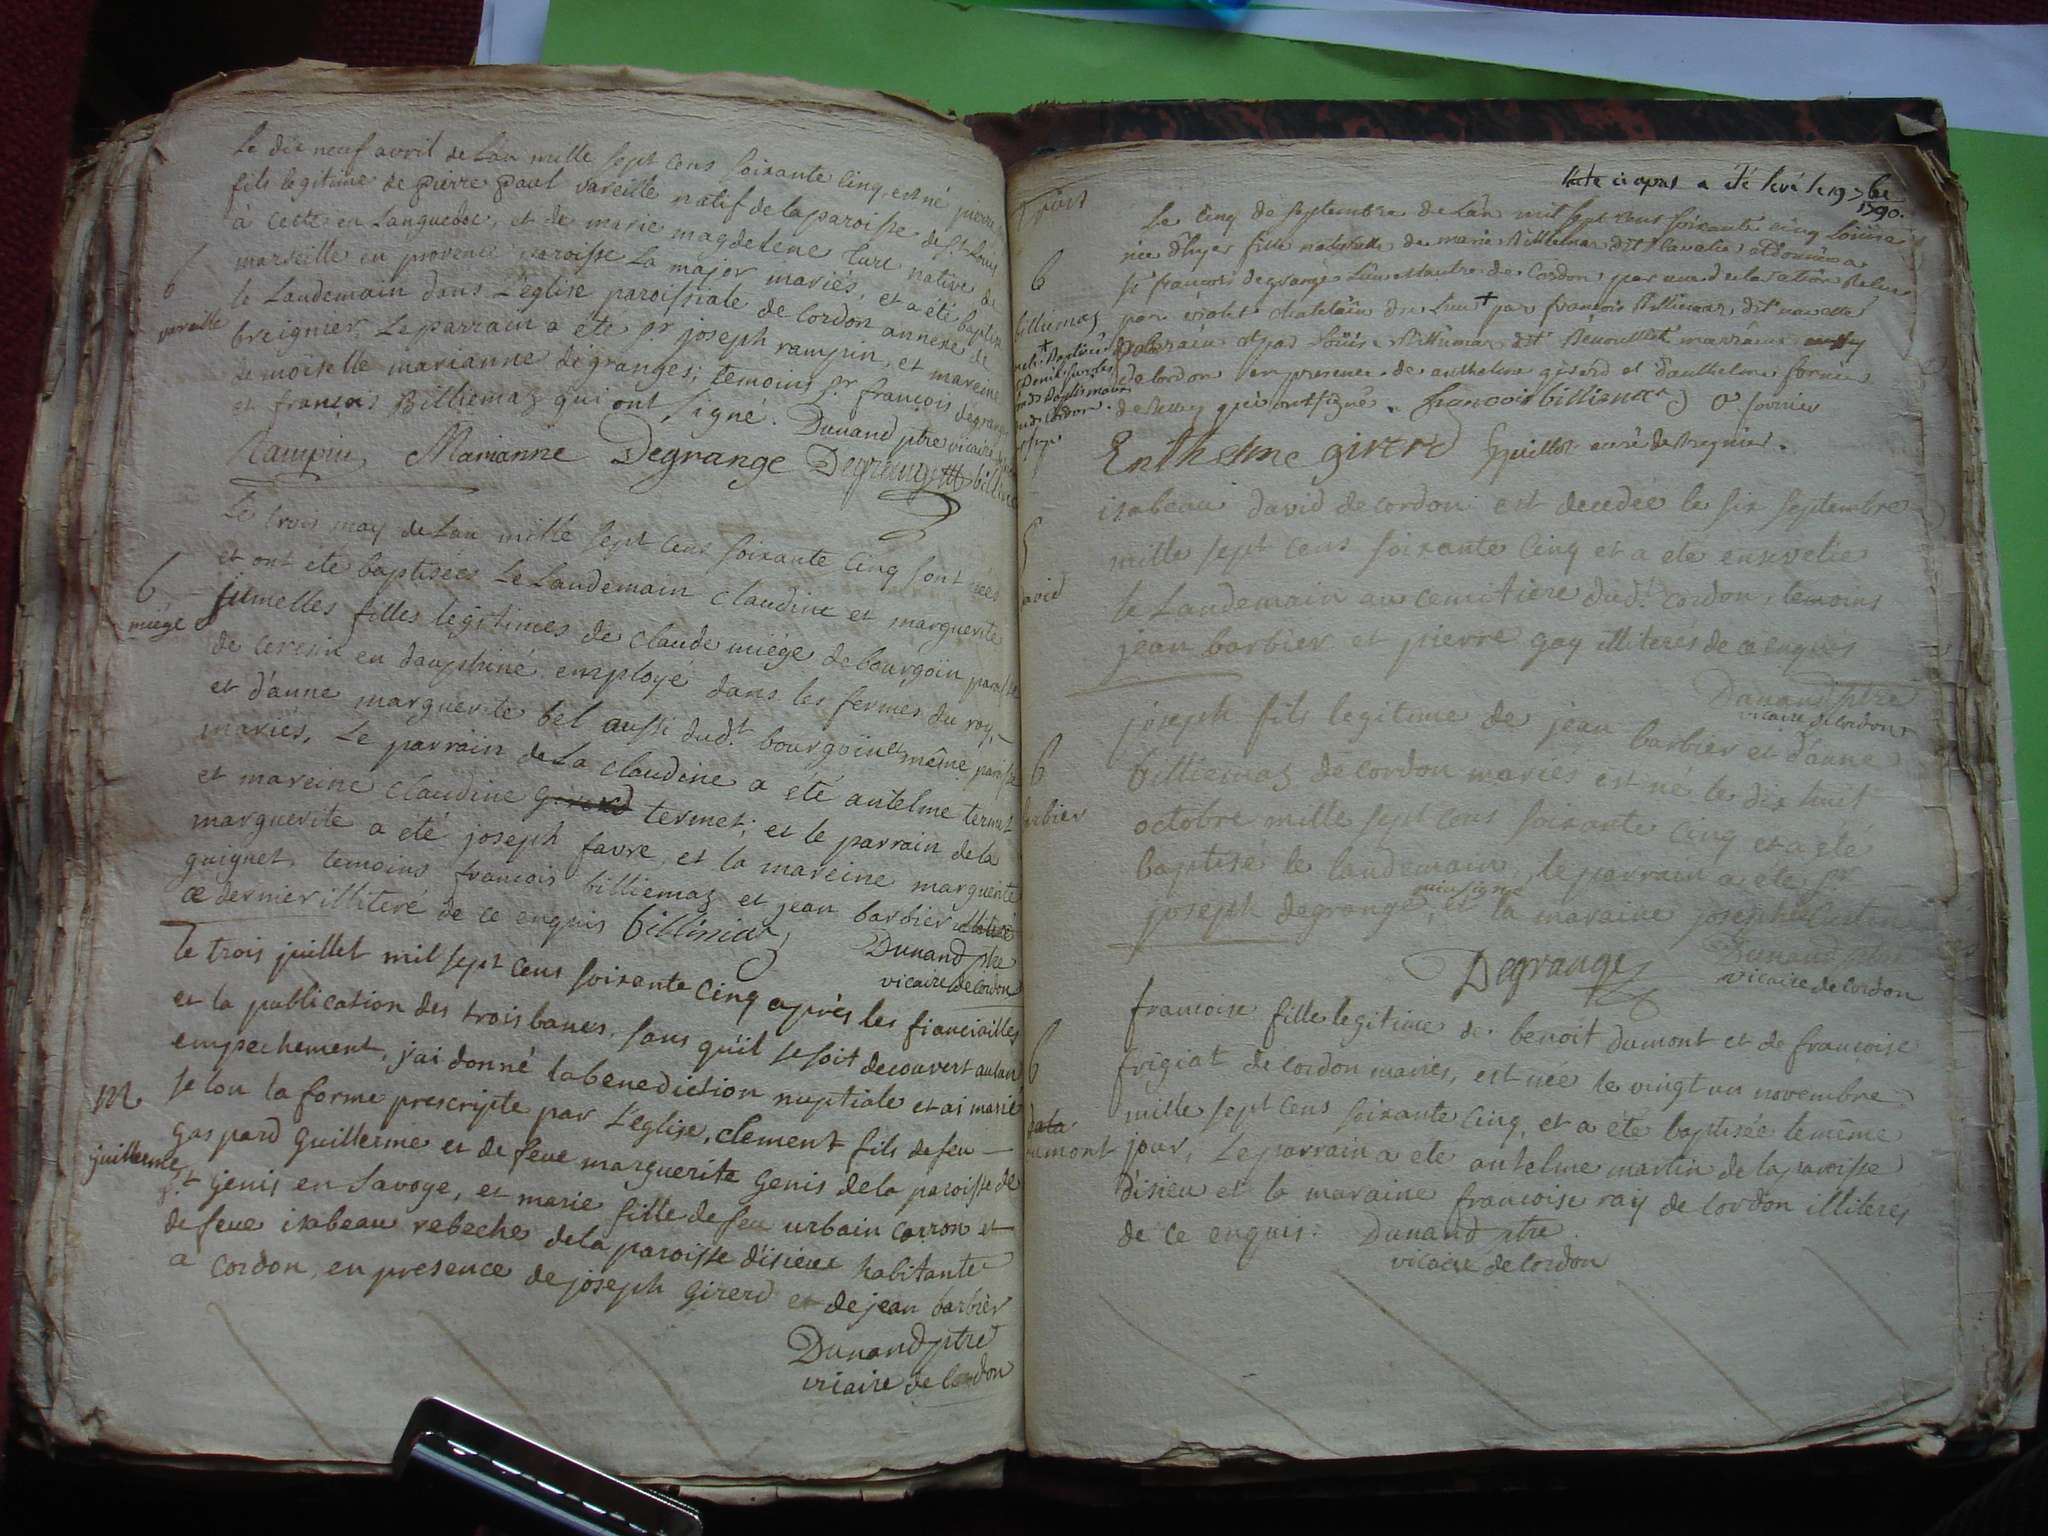 Le dix neuf avril de Lan mille sept cens soixante cinq, est né pierre
fils legitime de pierre paul vareille natif de la paroisse de St. Louis
à cette en Languedoc, et de marie magdelene native de
marseille en provence paroisse La major mariés, et a été baptisé
6
le Landemain dans L'eglise paroissiale de cordon annexe de
vareille
breignier. Le parrain a été sr. joseph rampin, et mareine
demoiselle marianne degranges; temoins sr. francois degrange
et francois Billiemaz qui ont signé. Dunand ptre vicaire
Rampin Marianne Degrange Degrange
Le trois may de Lan mille sept cens soixante cinq sont nées
et ont été baptisées Le Landemain claudine et marguerite
6
jumelles filles legitimes de claude miége de bourgoin paroisse
miége
de ceresin en dauphiné employé dans les fermes du roy,
et d'anne marguerite bel aussi dudt. bourgoin et même paroisse
mariés. Le parrain de La claudine a été antelme termet
et mareine claudine girerd termet; et le parrain de la
marguerite a été joseph favre, et la mareine marguerite
guignet, temoins francois billiemaz et jean barbier
ce dernier illiteré de ce enquis billiemaz
Dunand ptre
vicaire de cordon
Le trois juillet mil sept cens soixante cinq après les fianciailles
et la publication des trois bancs, sans qu'il se soit decouvert aucun
empechement, j'ai donné la benediction nuptiale et ai marié
M
selon la forme prescripte par L'eglise, clement fils de feu
gaspard guillerme et de feue marguerite genis de la paroisse de
guillerme
St. genis en Savoye, et marie fille de feu urbain carron et
de feue isabeau rebeche de la paroisse d'isieu habitante
a cordon, en presence de joseph girerd et de jean barbier
Dunand ptre
vicaire de cordon
acte ci apres a été levé le 19 7bre
1790.
Le cinq de septembre de Lan mil sept cens soixante cinq Louise
née d'hyer fille naturelle de marie billiemaz dit et donnée a
sr francois degrange de Cordon, par une declaration
6
par chatelain du Lieu + par francois Billiemaz dit
billiemaz
parrain et par Louise Billiemaz dit marraine
de cordon en presence de anthelme girerd et d'anthelme fornier
de qui ont signé. francois billiemaz fornier
Enthelme girerd guillot curé de bregnier.
isabeau david de cordon est decedée le six septembre
mille sept cens soixante cinq et a été ensevelie
avid
le Landemain au cemitiere dudt. cordon, temoins
jean barbier et pierre gay illiteres de ce enquis
Dunand ptre
vicaire de cordon
joseph fils legitime de jean barbier et d'anne
6
billiemaz de cordon mariés est né le dix huit
rbier
octobre mille sept cens soixante cinq et a été
baptisé le landemain, le parrain a été sr
joseph degrange, et la maraine josephe
Degrange
Dunand ptre
vicaire de cordon
francoise fille legitime de benoit dumont et de francoise
6
frigiat de cordon mariés, est née le vingt un novembre
mille sept cens soixante cinq, et a été baptisée le même
umont
jour, Le parrain a été antelme martin de la paroisse
d'isieu et la maraine francoise ray de cordon illiteres
de ce enquis. Dunand ptre
vicaire de cordon